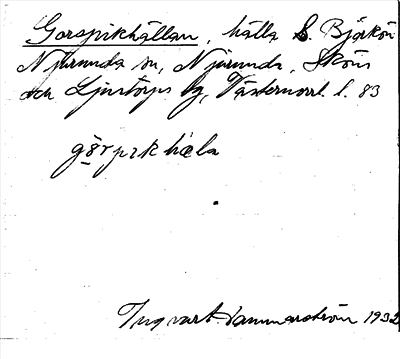 Gorspikhällan, hälla S. Björkön
Njurunda sn, Njurunda, Sköns
och Ljustorps tg, Västernorrl. l. 83
görpikhæla
Ingvar Hammarström 1932